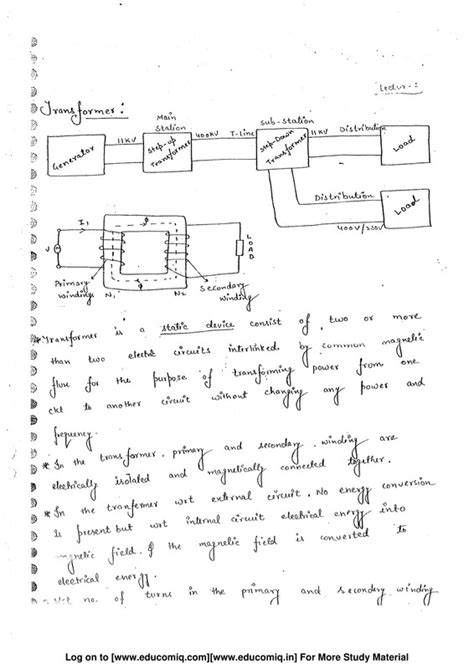 Lectur-1
Transformer:
Main Station
Sub-Station
Generator
11KV
Step-up Transformer
400KV T-Line
Step-Down Transformer
11KV Distribution
Load
Distribution
400V/230V
Load
V
I1
φ
LOAD
Primary winding
N1
N2
Secondary winding
φ
* Transformer is a static device consist of two or more
than two electric circuits interlinked by common magnetic
flux for the purpose of transforming power from one
ckt to another circuit without changing any power and
frequency.
* In the transformer, primary and secondary winding are
electrically isolated and magnetically connected together.
* In the transformer wrt external circuit, No energy conversion
is present but wrt internal circuit electrical energy into
magnetic field & the magnetic field is converted to
electrical energy.
no. of turns in the primary and secondary winding
Log on to [www.educomiq.com][www.educomiq.in] For More Study Material